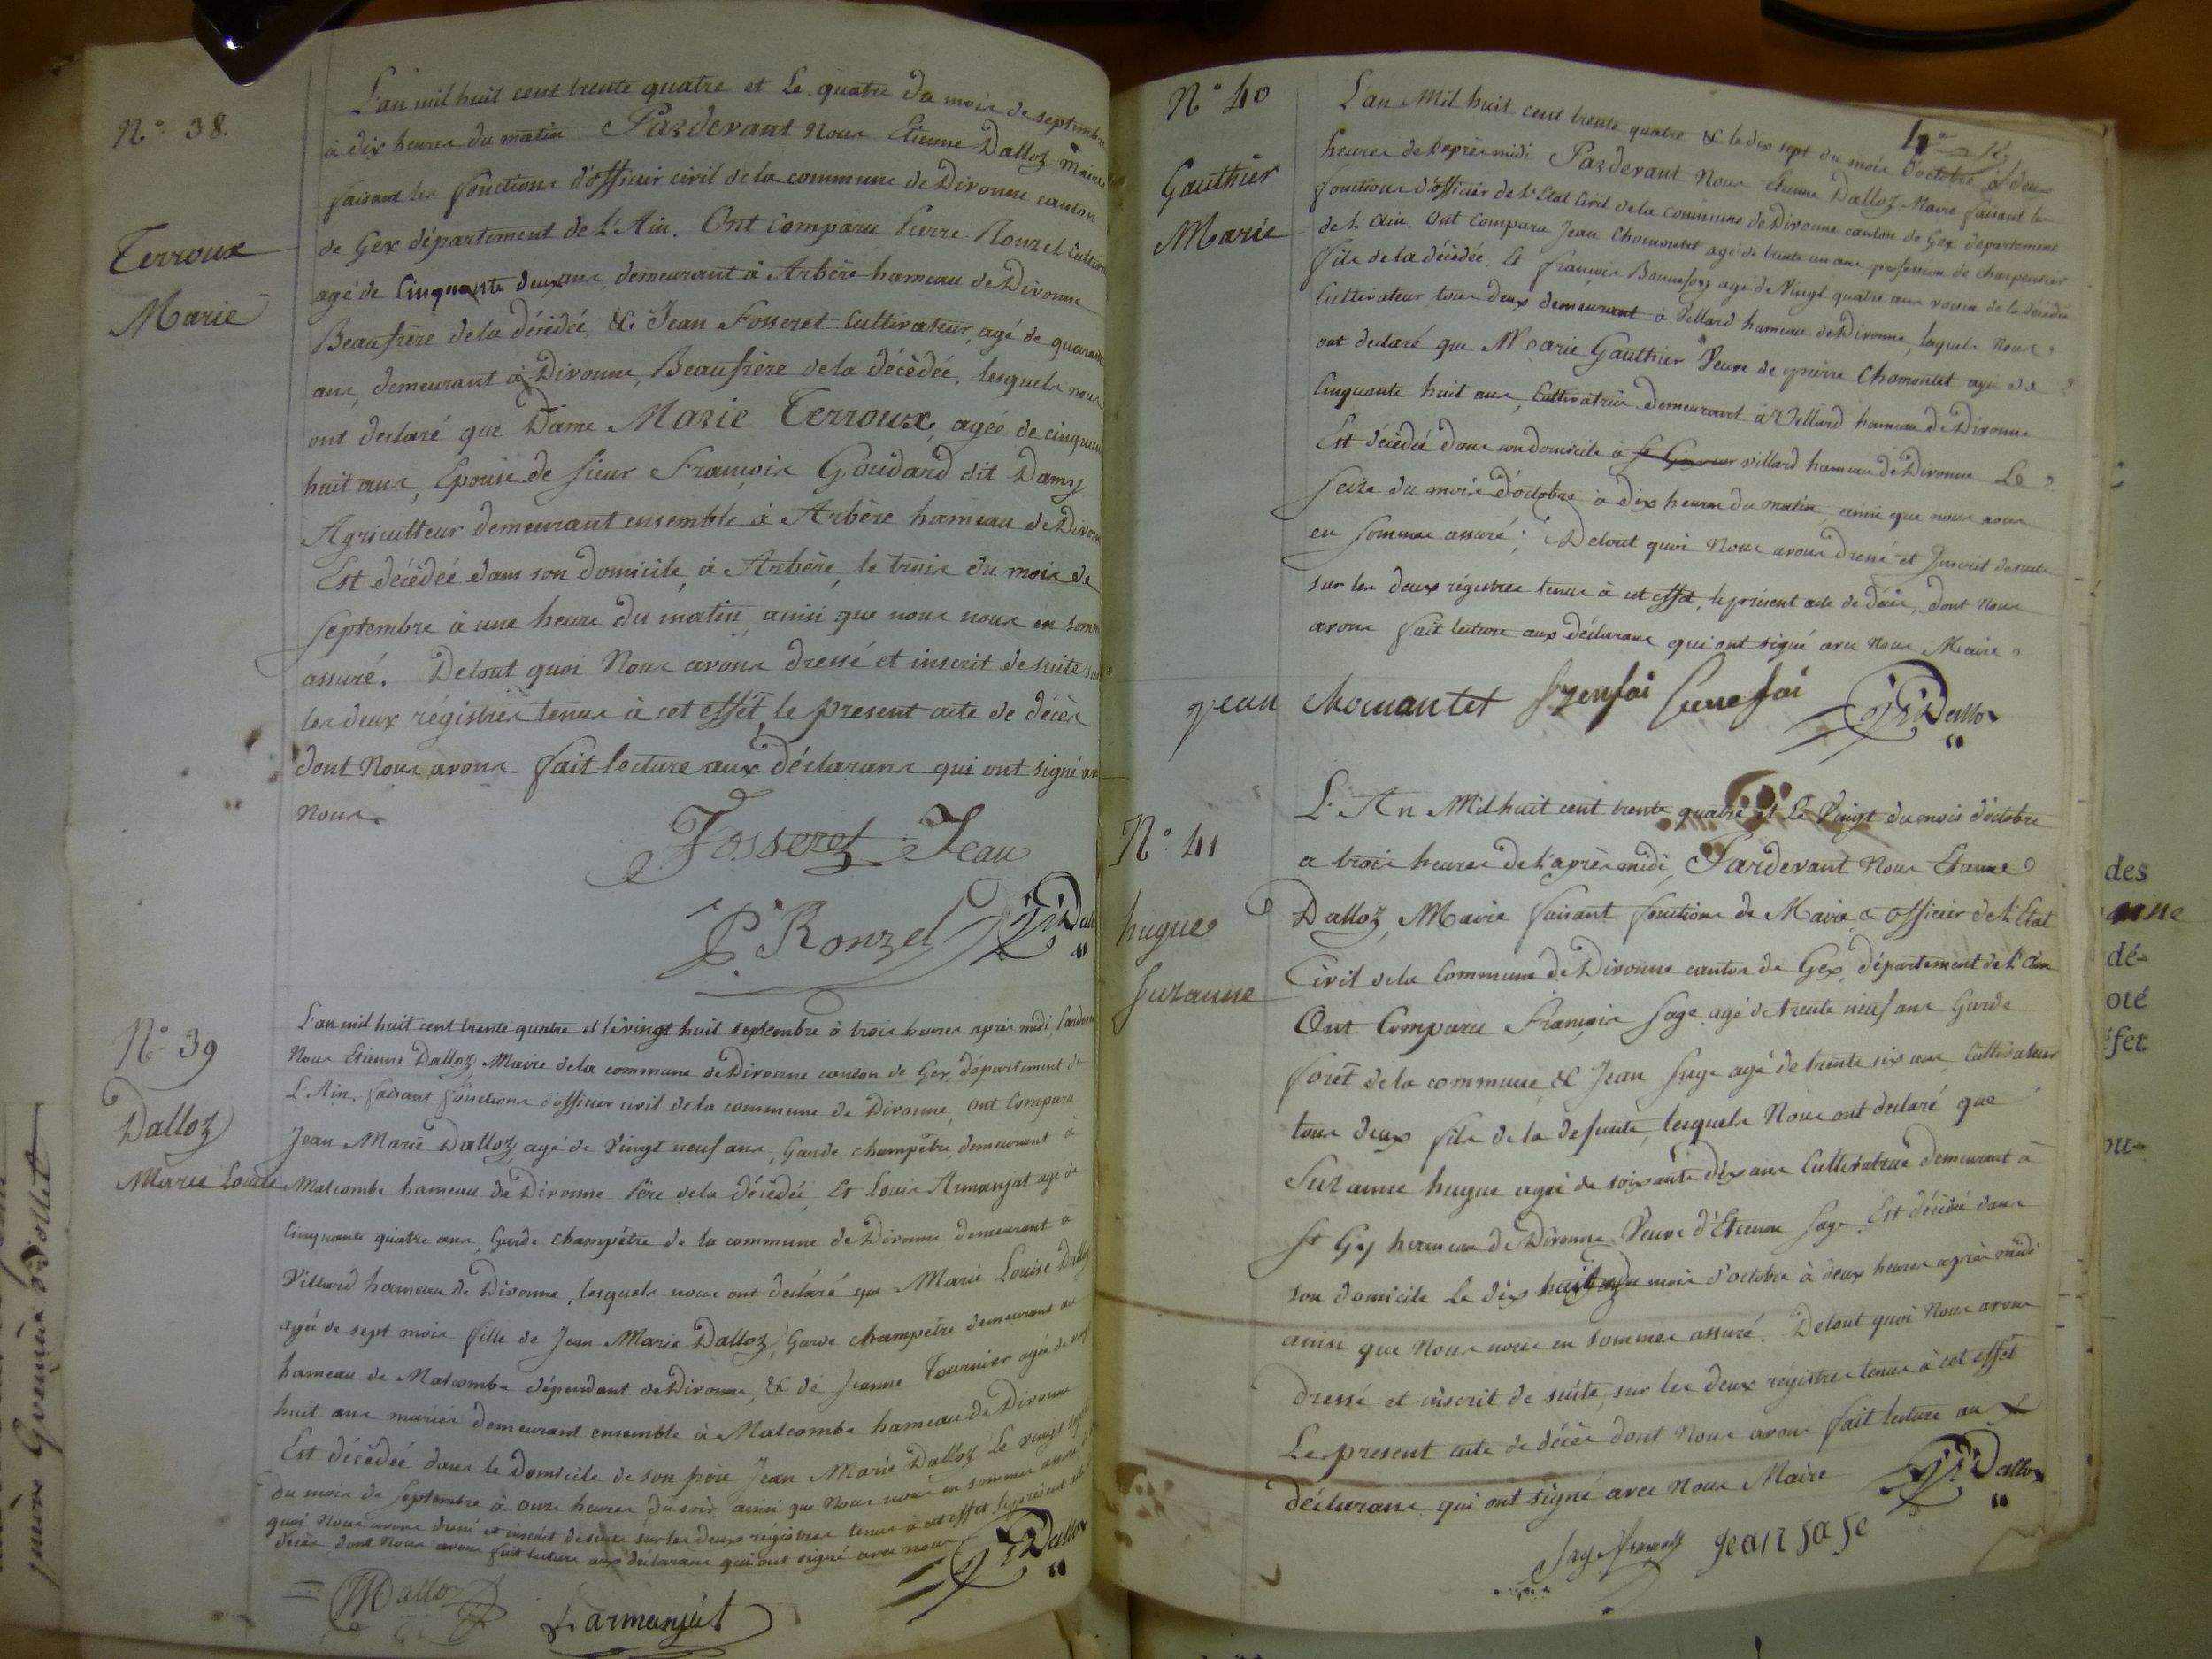 N.° 38.
Terroux
Marie
L'an mil huit cent trente quatre et le quatre du mois de septembre
à dix heures du matin Pardevant nous Etienne Dalloz Maire
faisant les fonctions d'officier civil de la commune de Divonne canton
de Gex département de L'Ain. Ont comparu Pierre Ronzel Cultiva
agé de Cinquante deux ans, demeurant à Arbère hameau de Divonne
Beaufrère de la décédée & Jean Fosseret Cultivateur, agé de quarante
ans, demeurant à Divonne, Beaufrère de la décédée, lesquels nous
ont declaré que Dame Marie Terroux, agée de cinquan
huit ans, Epouse de sieur François Goudard dit Damy
Agriculteur demeurant ensemble à Arbère hameau de Divon
Est décédée dans son domicile, à Arbère, le trois du mois de
septembre à une heure du matin, ainsi que nous nous en somm
assuré. De tout quoi Nous avons dressé et inscrit de suite sur
les deux régistres tenus à cet effet, le présent acte de décès
dont Nous avons fait lecture aux déclarans qui ont signé av
nous.
Fosseret Jean
P. Ronzel Dall
N.° 39
Dalloz
Marie Louise
L'an mil huit cent trente quatre et le vingt huit septembre à trois heures après midi, Pardevan
Nous Etienne Dalloz Maire de la commune de Divonne canton de Gex, département de
L'Ain, faisant fonctions d'officier civil de la commune de Divonne, Ont comparu
Jean Marie Dalloz, agé de Vingt neuf ans, Garde champêtre, demeurant à
Malcombe hameau de Divonne Père de la décédée, Et Louis Armanjat agé de
Cinquante quatre ans, Garde champêtre de la commune de Divonne demeurant à
Villard hameau de Divonne, lesquels nous ont declaré que Marie Louise Dalloz
agée de sept mois fille de Jean Marie Dalloz, Garde champêtre demeurant au
hameau de Malcombe dépendant de Divonne, & de Jeanne Tournier agée de vingt
huit ans mariés demeurant ensemble à Malcombe hameau de Divonne
Est décédée dans le domicile de son père Jean Marie Dalloz Le vingt sept
du mois de septembre à onze heures du soir ainsi que Nous nous en sommes assuré
quoi Nous avons dressé et inscrit de suite sur les deux régistres tenus à cet effet, le présent acte
décès, dont Nous avons fait lecture aux déclarans qui ont signé avec nous.
Dalloz
JM Dalloz L armanjat
N.° 40
Gauthier
Marie
L'an Mil huit cent trente quatre & le dix sept du mois d'octobre à deux
heures de l'après midi Pardevant Nous Etienne Dalloz Maire faisant les
fonctions d'officier de l'Etat Civil de la commune de Divonne canton de Gex département
de L'Ain. Ont comparu Jean Chomontet agé de trente un ans profession de charpentier
fils de la décédée, Et François Bonnefoy agé de Vingt quatre ans voisin de la décédée
Cultivateur tous deux demeurant à Villard hameau de Divonne, lesquels nous
ont declaré que Marie Gauthier Veuve de pierre Chomontet agée de
Cinquante huit ans, Cultivatrice demeurant à Villard hameau de Divonne
Est décédée dans son domicile à villard hameau de Divonne Le
seize du mois d'octobre à dix heures du matin ainsi que nous nous
en sommes assuré; De tout quoi Nous avons dressé et Inscrit de suite
sur les deux régistres tenus à cet effet, le présent acte de décès, dont Nous
avons fait lecture aux déclarans qui ont signé avec nous Maire
jean chomontet Dalloz
N.° 41
hugue
suzanne
L'An Mil huit cent trente quatre et Le Vingt du mois d'octobre
a trois heures de l'après midi, Pardevant Nous Etienne
Dalloz, Maire faisant fonctions de Maire & officier de l'Etat
Civil de la Commune de Divonne canton de Gex, département de L'Ain
Ont Comparu François Sage agé de trente neuf ans Garde
forêt de la commune & Jean Sage agé de trente six ans, Cultivateur
tous deux fils de la defunte, lesquels Nous ont declaré que
Suzanne hugue agée de soixante dix ans Cultivatrice demeurant à
St Gy hameau de Divonne Veuve d'Etienne Sage, Est décédée dans
son domicile Le dix huit du mois d'octobre à deux heures après midi
ainsi que Nous nous en sommes assuré. De tout quoi Nous avons
Dressé et inscrit de suite, sur les deux régistres tenus à cet effet
Le présent acte de décès dont Nous avons fait lecture aux
déclarans qui ont signé avec Nous Maire
Dalloz
Sage françois jean saje
des
dé-
oté
fet
ou-